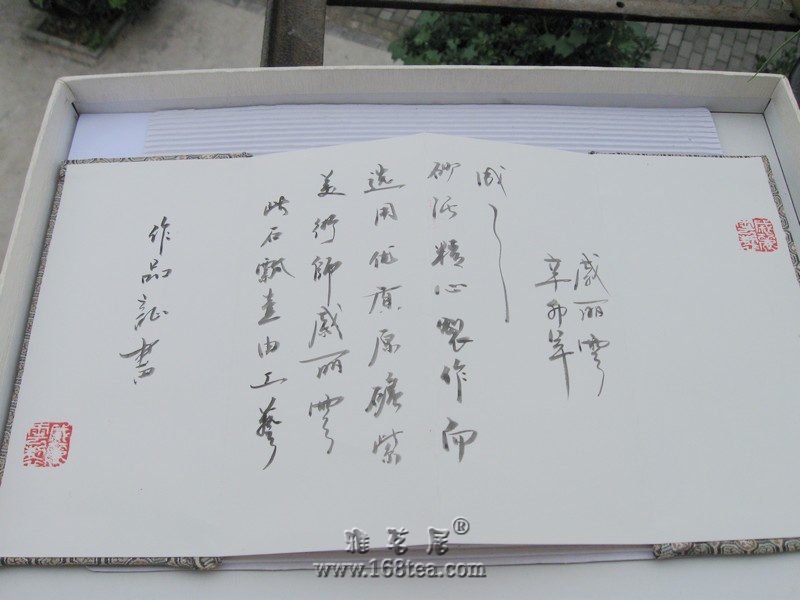 作品证書
此石瓢壶由工藝
美術師 丽
选用优质原礦紫
砂泥精心製作而
成
辛卯年
丽
雅茗居®
www.168tea.com